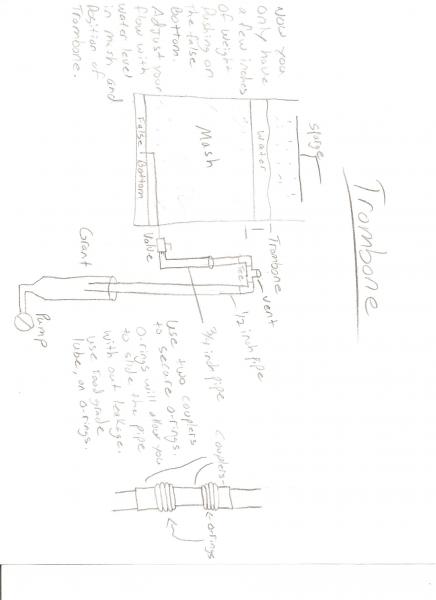 Trombone
Now you
only have
a few inches
of weight
Pushing on
the false
Bottom.
Adjust your
flow with
water level
in mash and
Position of
Trombone.
sparge
water
Mash
False Bottom
Trombone
vent
Tee
Valve
1/2 inch pipe
3/4 inch pipe
Grant
Pump
use two couplers
to secure o-rings.
o-rings will allow you
to slide the pipe
with out leakage.
use food grade
lube, on o-rings.
couplers
o-rings